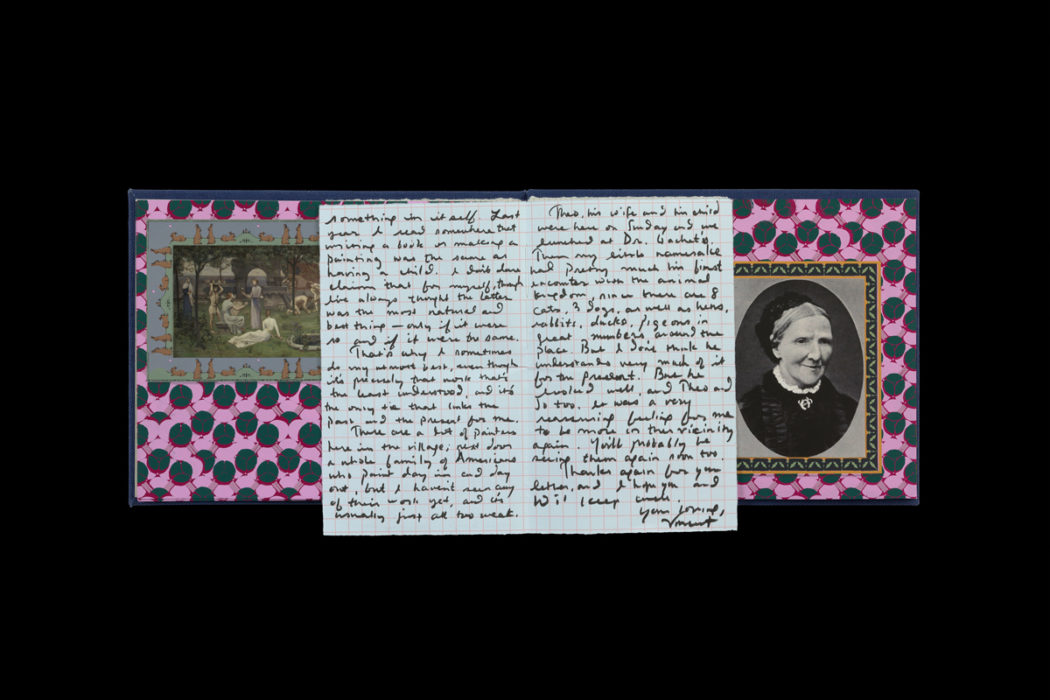 something in itself. Last
year I read somewhere that
writing a book or making a
painting was the same as
having a child. I don't dare
claim that for myself, though
I've always thought the latter
was the most natural and
best thing — only if it were
so and if it were the same.
That's why I sometimes
do my utmost best, even though
it's precisely that work that's
the least understood, and it's
the only tie that links the
past and the present for me.
There are a lot of painters
here in the village; next door
a whole family of Americans
who paint day in and day
out, but I haven't seen any
of their work yet, and it's
usually just all too weak.
Theo, his wife and his child
were here on Sunday and we
lunched at Dr. Gachet's.
There my little namesake
had pretty much his first
encounter with the animal
kingdom, since there are 8
cats, 3 dogs, as well as hens,
rabbits, ducks, pigeons in
great numbers around the
place. But I don't think he
understands very much of it
for the present. But he
looked well, and Theo and
Jo too. It was a very
reassuring feeling for me
to be more in their vicinity
again. You'll probably be
seeing them again soon too.
Thanks again for your
letter, and I hope you and
Wil keep well.
Your loving,
Vincent